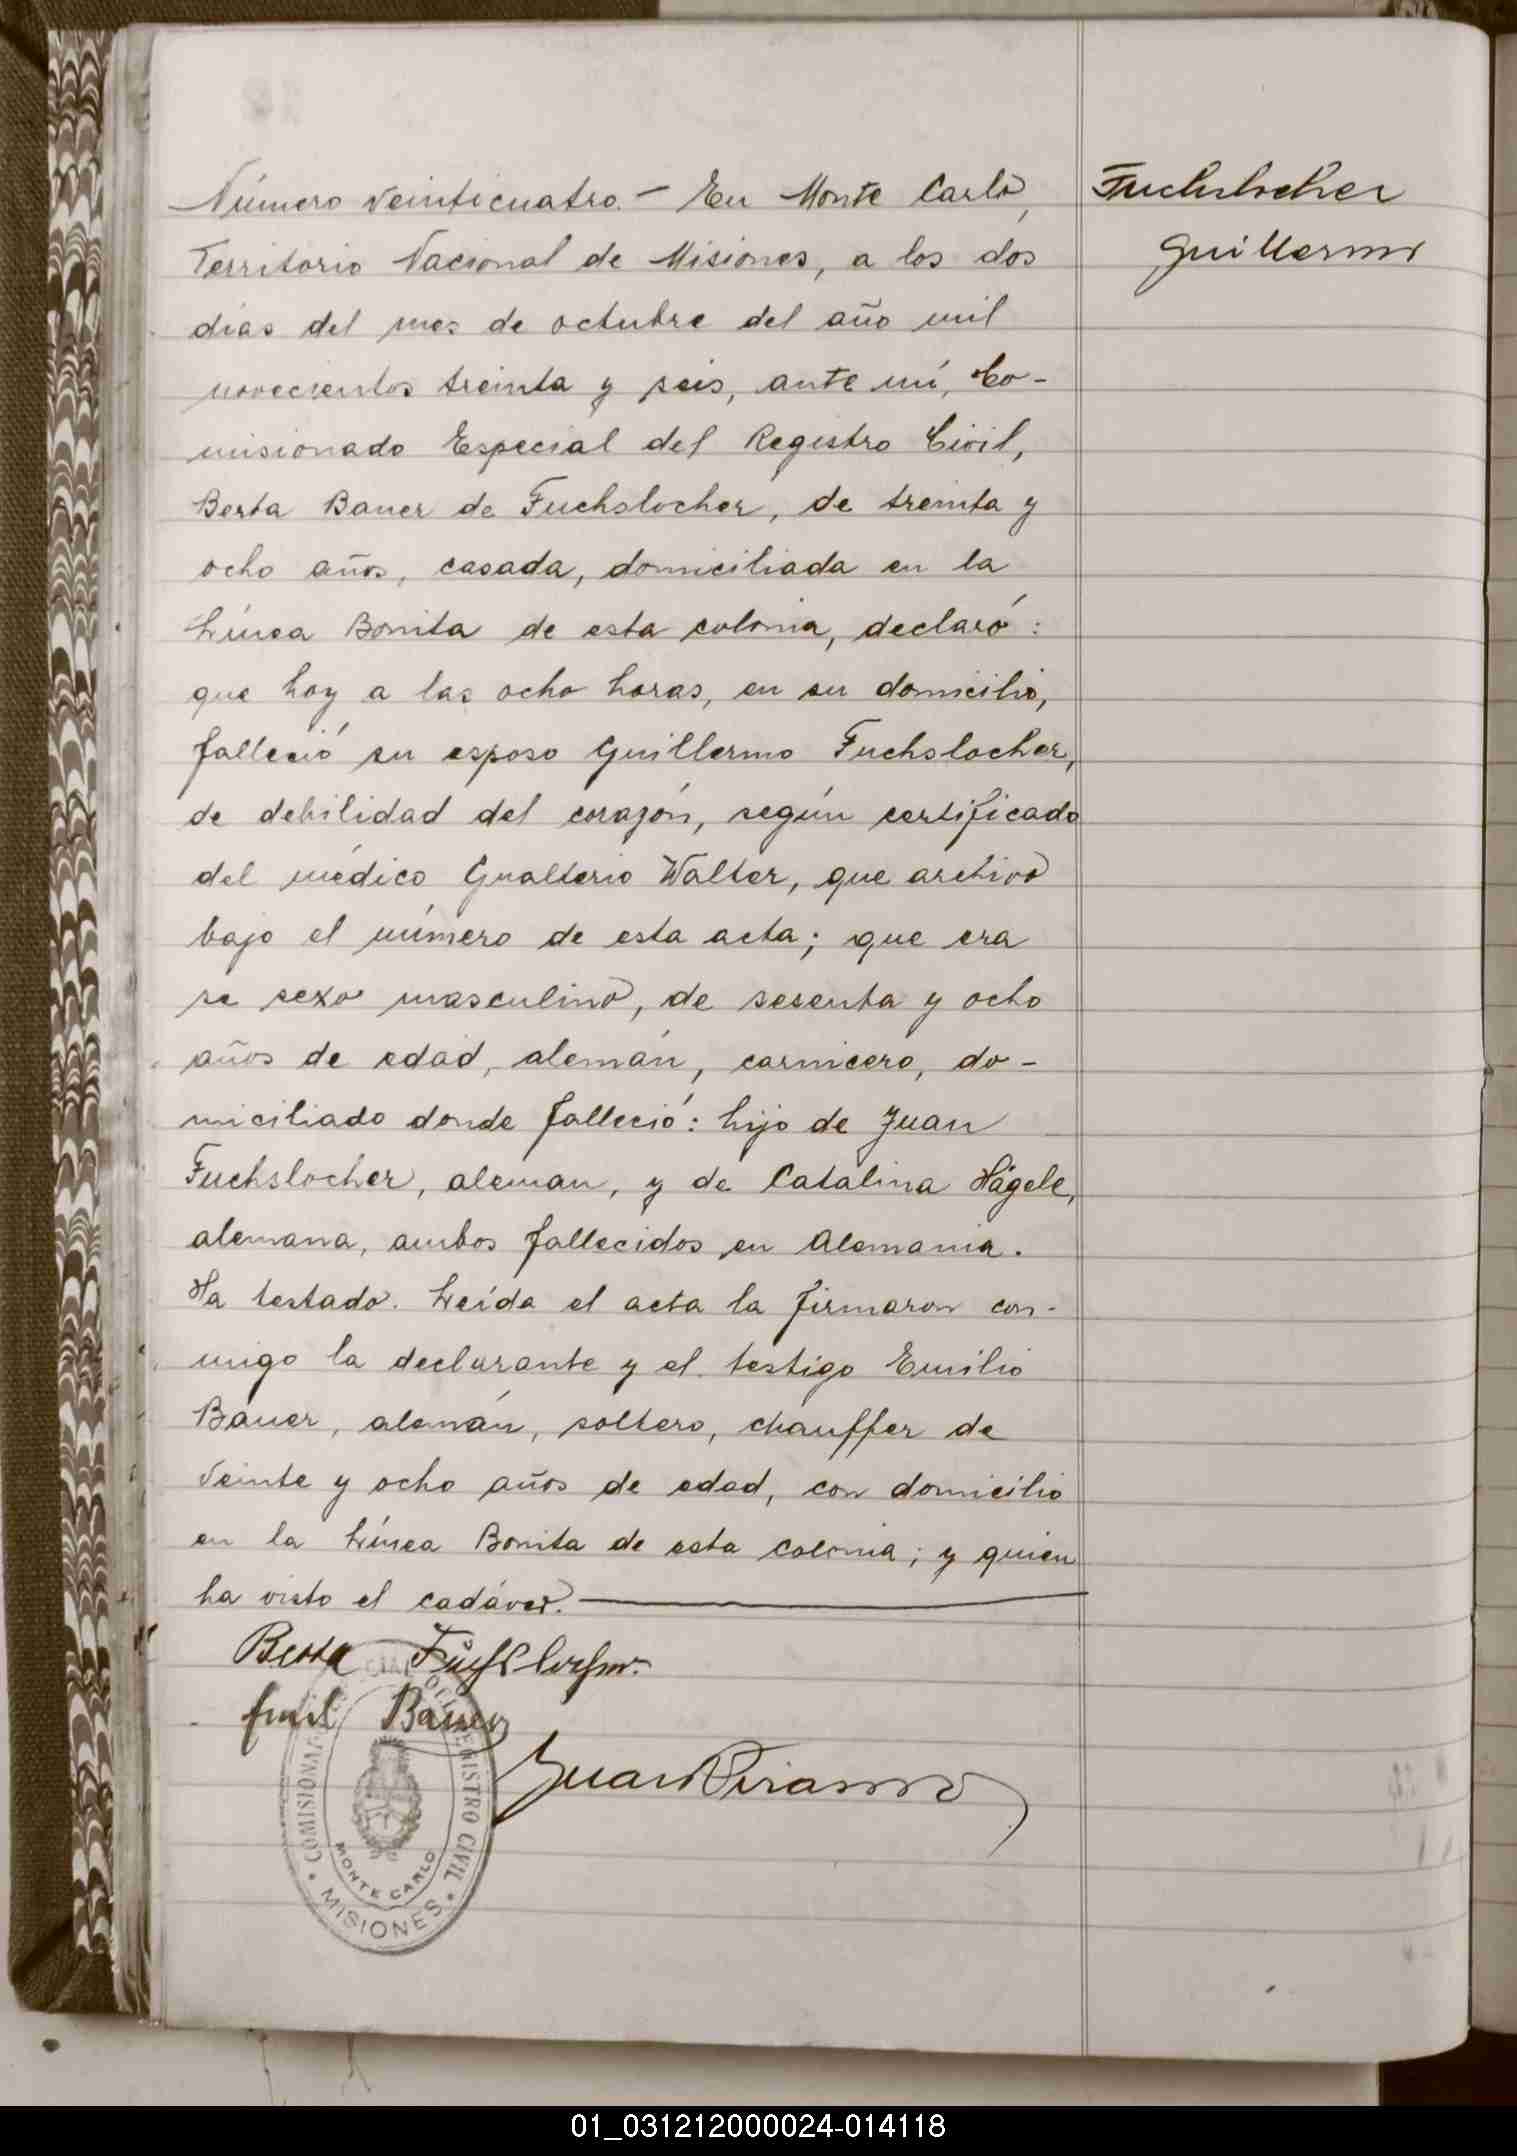 Número veinticuatro. — En Monte Carlo,
Territorio Nacional de Misiones, a los dos
días del mes de octubre del año mil
novecientos treinta y seis, ante mí, Co-
misionado Especial del Registro Civil,
Berta Bauer de Fuchslocher, de treinta y
ocho años, casada, domiciliada en la
Línea Bonita de esta colonia, declaró:
que hoy a las ocho horas, en su domicilio,
falleció su esposo Guillermo Fuchslocher,
de debilidad del corazón, según certificado
del médico Gualterio Walter, que archivo
bajo el número de esta acta; que era
se sexo masculino, de sesenta y ocho
años de edad, alemán, carnicero, do-
miciliado donde falleció: hijo de Juan
Fuchslocher, aleman, y de Catalina Hágele,
alemana, ambos fallecidos en Alemania.
Ha testado. Leída el acta la firmaron con-
migo la declarante y el testigo Emilio
Bauer, alemán, soltero, chauffer de
veinte y ocho años de edad, con domicilio
en la Línea Bonita de esta colonia; y quien
ha visto el cadáver.
Berta Fuchslocher.
Emil Bauer
Fuchslocher
Guillermo
REGISTRO CIVIL
MONTE CARLO
MISIONES
01_031212000024-014118